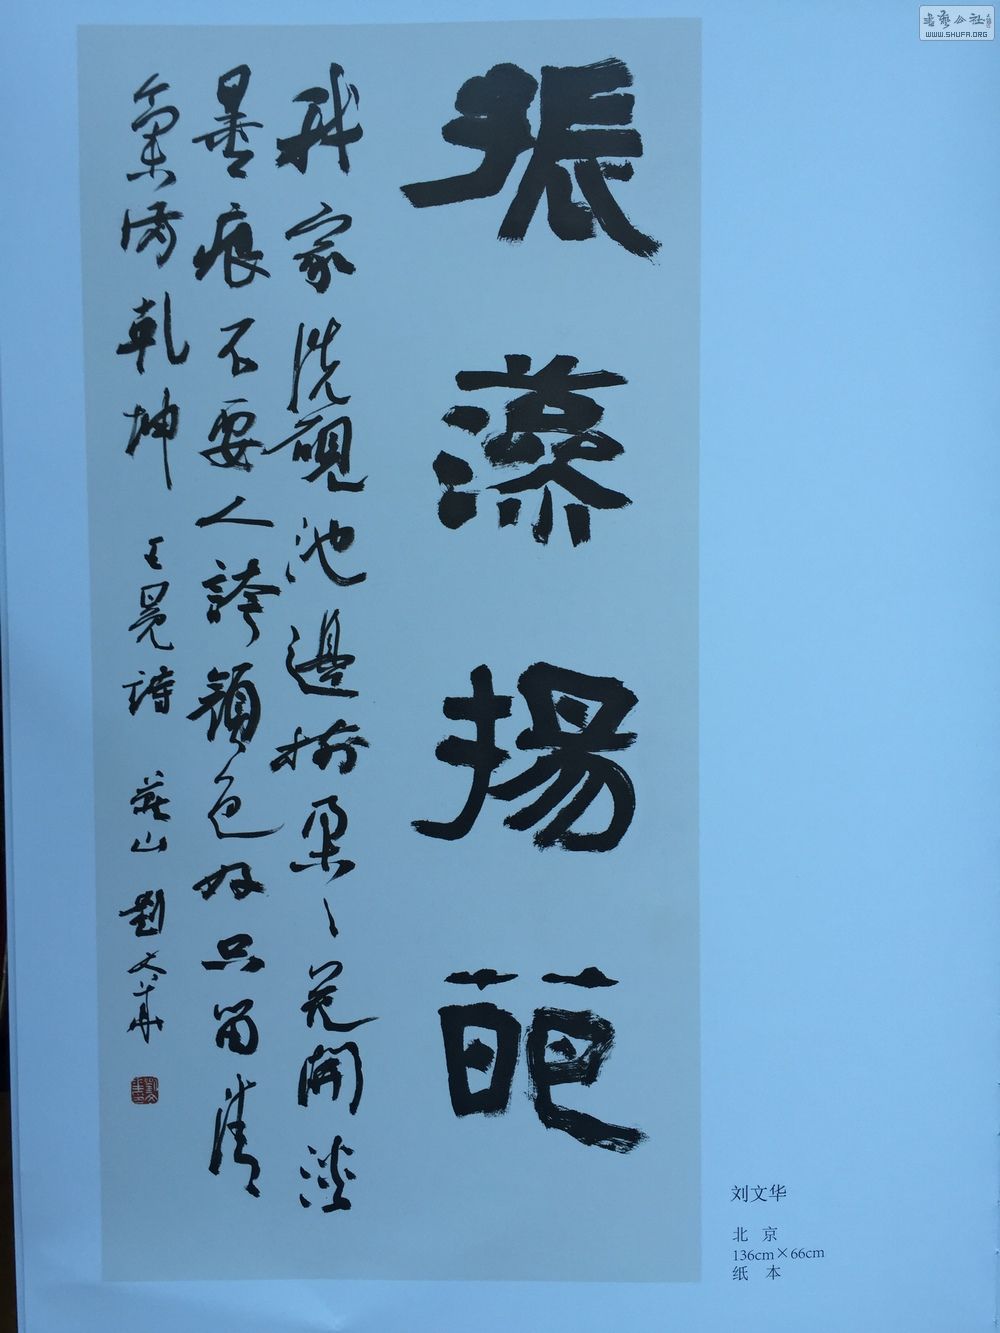 振藻揚葩
我家洗硯池邊樹朶〻花開淡
墨痕不要人誇顏色好只留清
氣滿乾坤 王冕詩 燕山劉文華
刘文华
北 京
136cm×66cm
纸 本
书艺公社
WWW.SHUFA.ORG